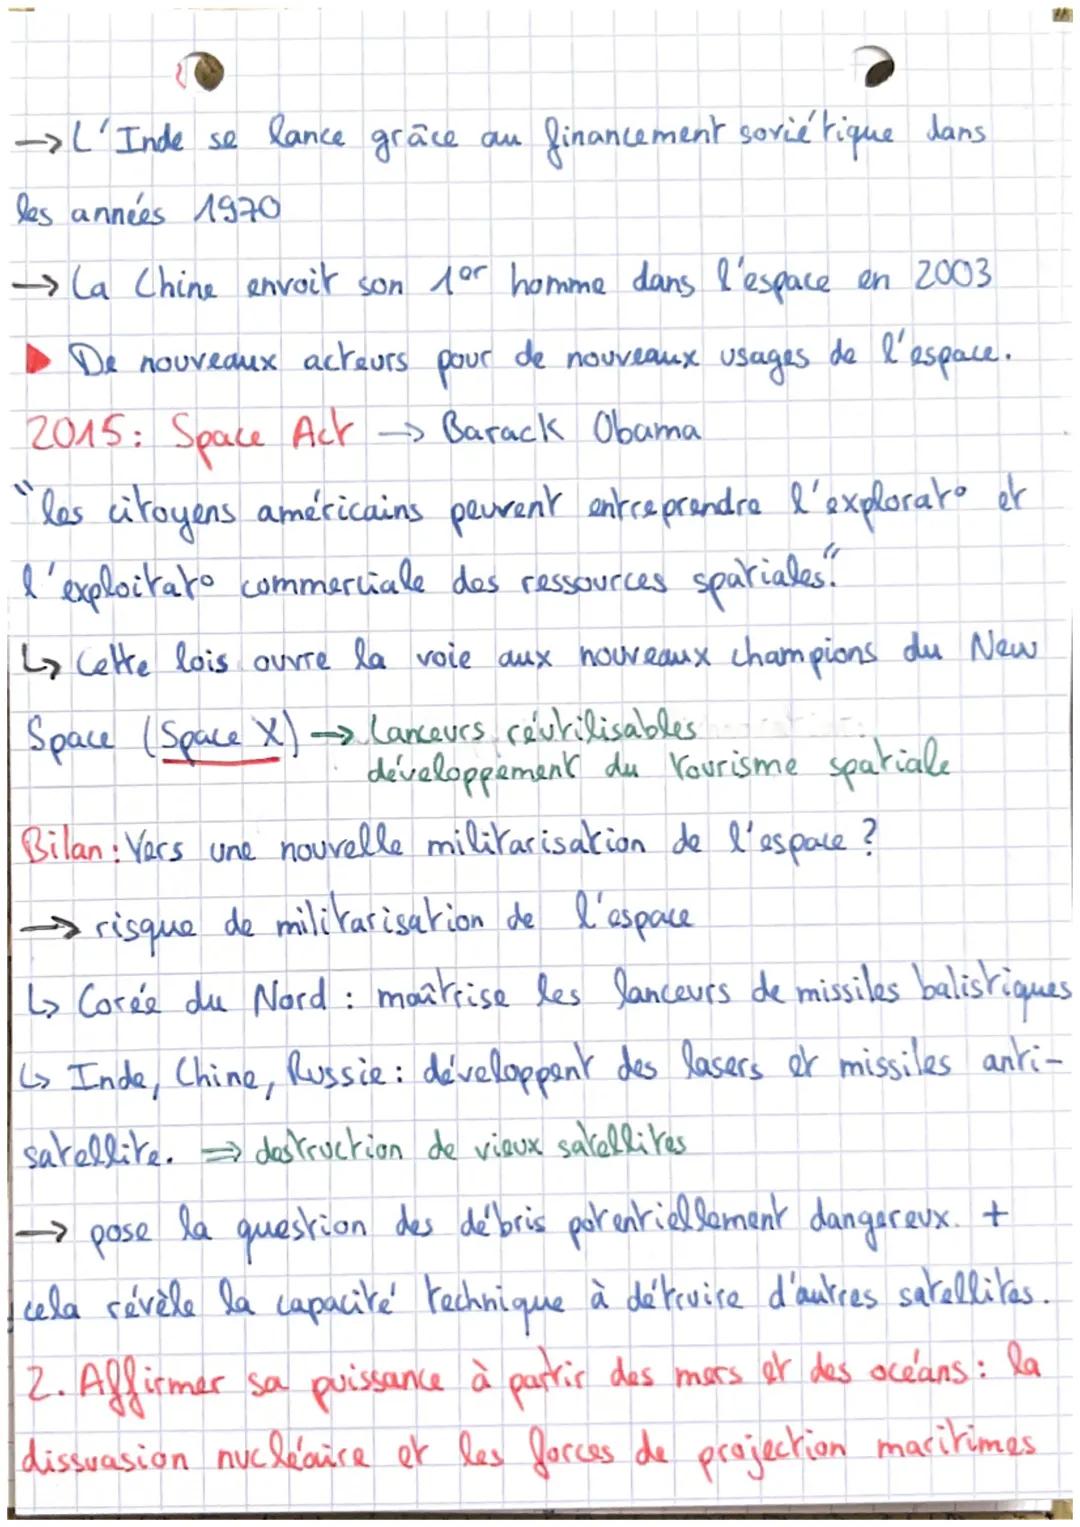 → L'Inde se lance grâce au financement soviétique dans
les années 1970
→ La Chine envoit son 1er homme dans l'espace en 2003
▶ De nouveaux acteurs pour de nouveaux usages de l'espace.
2015: Space Act → Barack Obama
"les citoyens américains peuvent entreprendre l'explorat° et
l'exploitat° commerciale des ressources spatiales."
↳ Cette lois ouvre la voie aux nouveaux champions du New
Space (Space X) → Lanceurs réutilisables
développement du tourisme spatiale
Bilan: Vers une nouvelle militarisation de l'espace ?
→ risque de militarisation de l'espace
↳ Corée du Nord : maîtrise les lanceurs de missiles balistiques
↳ Inde, Chine, Russie: développent des lasers et missiles anti-
satellite. ⇒ destruction de vieux satellites
→ pose la question des débris potentiellement dangereux. +
cela révèle la capacité technique à détruire d'autres satellites.
2. Affirmer sa puissance à partir des mers et des océans: la
dissuasion nucléaire et les forces de projection maritimes